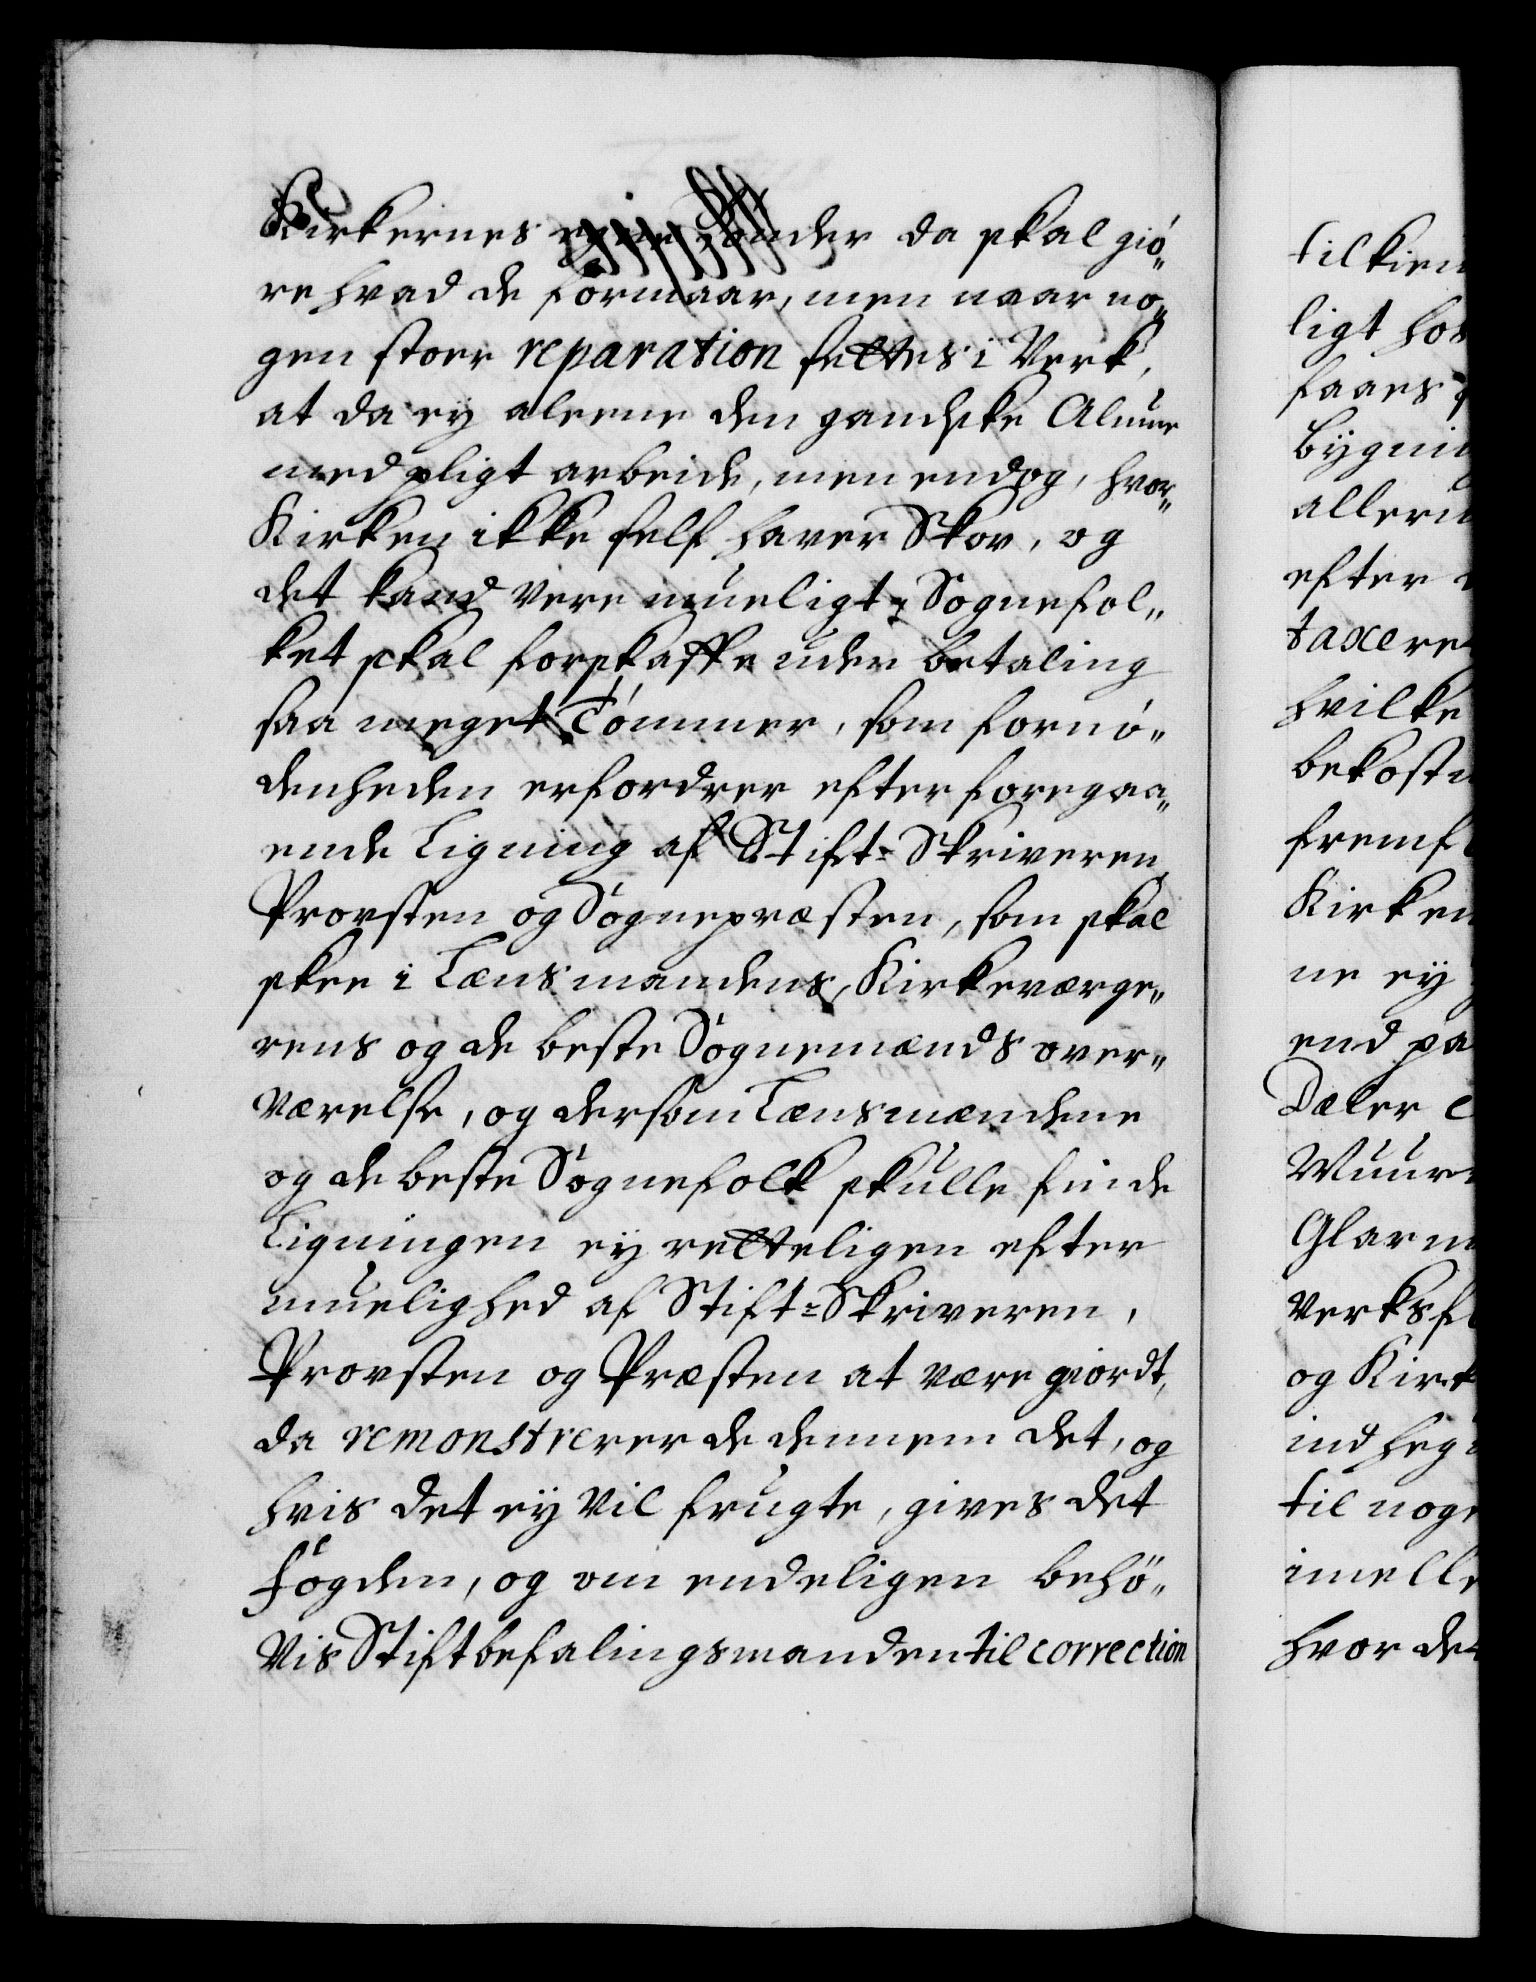 Kirkernes egne bønder da skal giö„
re hvad de formaar, men naar no„
gen stoer reparation settes i Verk,
at da ey aleene den gandske Almue
med pligt arbeide, men endog, hvor„
Kirken ikke self haver Skov, og
det kand vere mueligt, Sognefol„
ket skal forskaffe uden betaling
saa meget Tömmer, som fornö„
denheden erfordrer efter foregaa„
ende Ligning af Stift=Skriveren,
Provsten og Sognepræsten, som skal
skee i Lænsmandens, Kirkeværge„
rens og de beste Sognemænds over„
værelse, og dersom Lænsmændene
og de beste Sognefolk skulle finde
Ligningen ey retteligen efter
muelighed af Stift=Skriveren,
Provsten og Præsten at være giordt,
da remonstrerer de dennem det, og
hvis det ey vil frugte, gives det
Fogden, og om endeligen behö„
vis Stiftbefalingsmanden til correction
til kien
ligt hos
faaes
bygni
aller
efter
taxere
hvilke
bekost
fremf
Kirken
ne ey
end pa
Dæler
Muur
Glar
verksf
og Kirk
indheg
til noge
imelle
hvor det